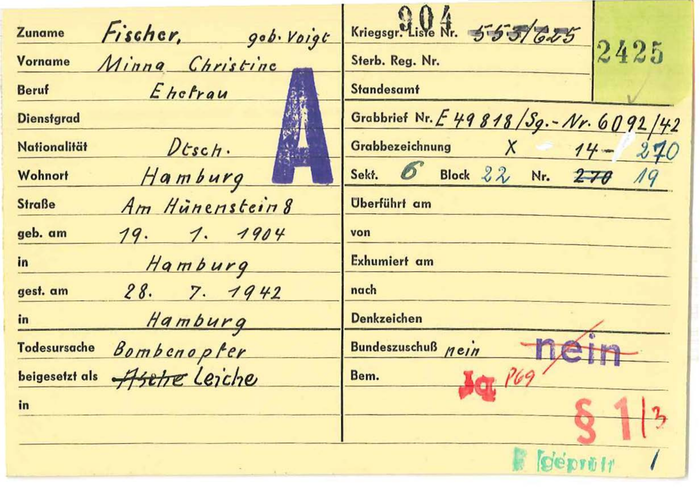 Zuname Fischer, geb. Voigt
Vorname Minna Christine
Beruf Ehefrau
Dienstgrad
Nationalität Dtsch.
Wohnort Hamburg
Straße Am Hünenstein 8
geb. am 19. 1. 1904
in Hamburg
gest. am 28. 7. 1942
in Hamburg
Todesursache Bombenopfer
beigesetzt als Asche Leiche
in
A
904
Kriegsgr. Liste Nr. 553/625
2425
Sterb. Reg. Nr.
Standesamt
Grabbrief Nr. E 49818/Sg.-Nr. 6092/42
Grabbezeichnung X 14- 270
Sekt. 6 Block 22 Nr. 270 19
Überführt am
von
Exhumiert am
nach
Denkzeichen
Bundeszuschuß nein nein
Bem. Jq P69
§ 1/3
geprüft 1